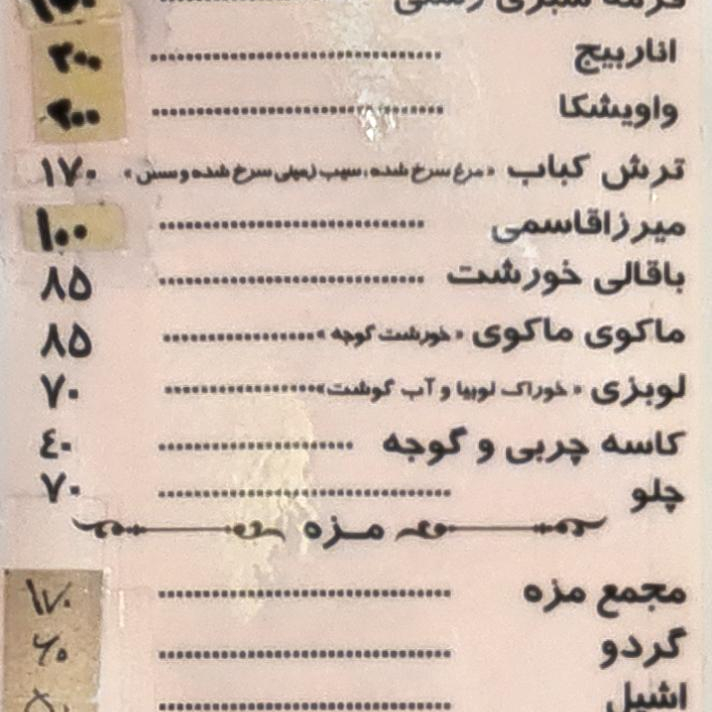 قرمه سبزی رشتی
اناربیج ۲۰۰
واویشکا ۲۰۰
ترش کباب «مرغ سرخ شده، سیب زمینی سرخ شده و سس» ۱۷۰
میرزاقاسمی ۱۰۰
باقالی خورشت ۸۵
ماکوی ماکوی «خورشت گوجه» ۸۵
لوبزی «خوراک لوبیا و آب گوشت» ۷۰
کاسه چربی و گوجه ٤۰
چلو ۷۰
مزه
مجمع مزه ۱۷۰
گردو ۶۰
اشپل